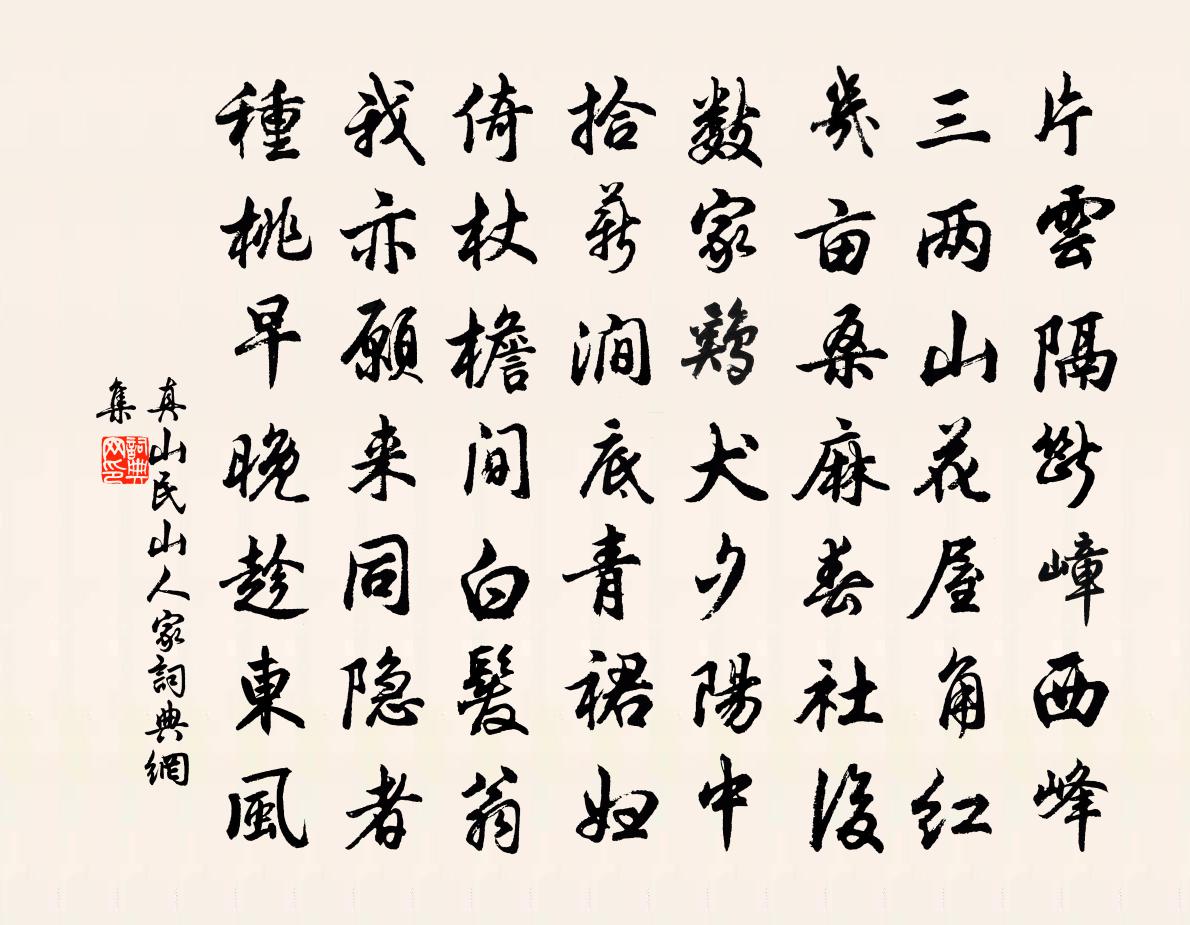 片雲隔斷嶂西峰
三两山花屋角紅
幾亩桑麻春社後
數家鷄犬夕陽中
拾薪澗底青裙妇
倚杖檐间白髮翁
我亦願来同隐者
種桃早晚趁東風
真山民山人家詞典網
集
詞典
网印